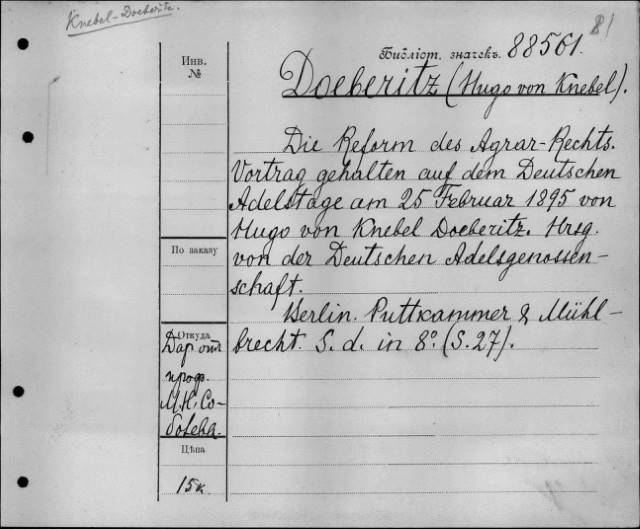 Knebel-Doeberitz.
81
Инв.
№
Библіот. значекъ. 88561.
Doeberitz (Hugo von Knebel).
Die Reform des Agrar-Rechts.
Vortrag gehalten auf dem Deutschen
Adelstage am 25 Februar 1895 von
Hugo von Knebel Doeberitz. Hrsg.
von der Deutschen Adelsgenossen-
schaft.
Berlin. Puttkammer & Mühl-
brecht. S. d. in 8º. (S. 27).
По заказу
Откуда
Дар отъ
проф.
М.Н. Со-
болева.
Цѣна
15к.